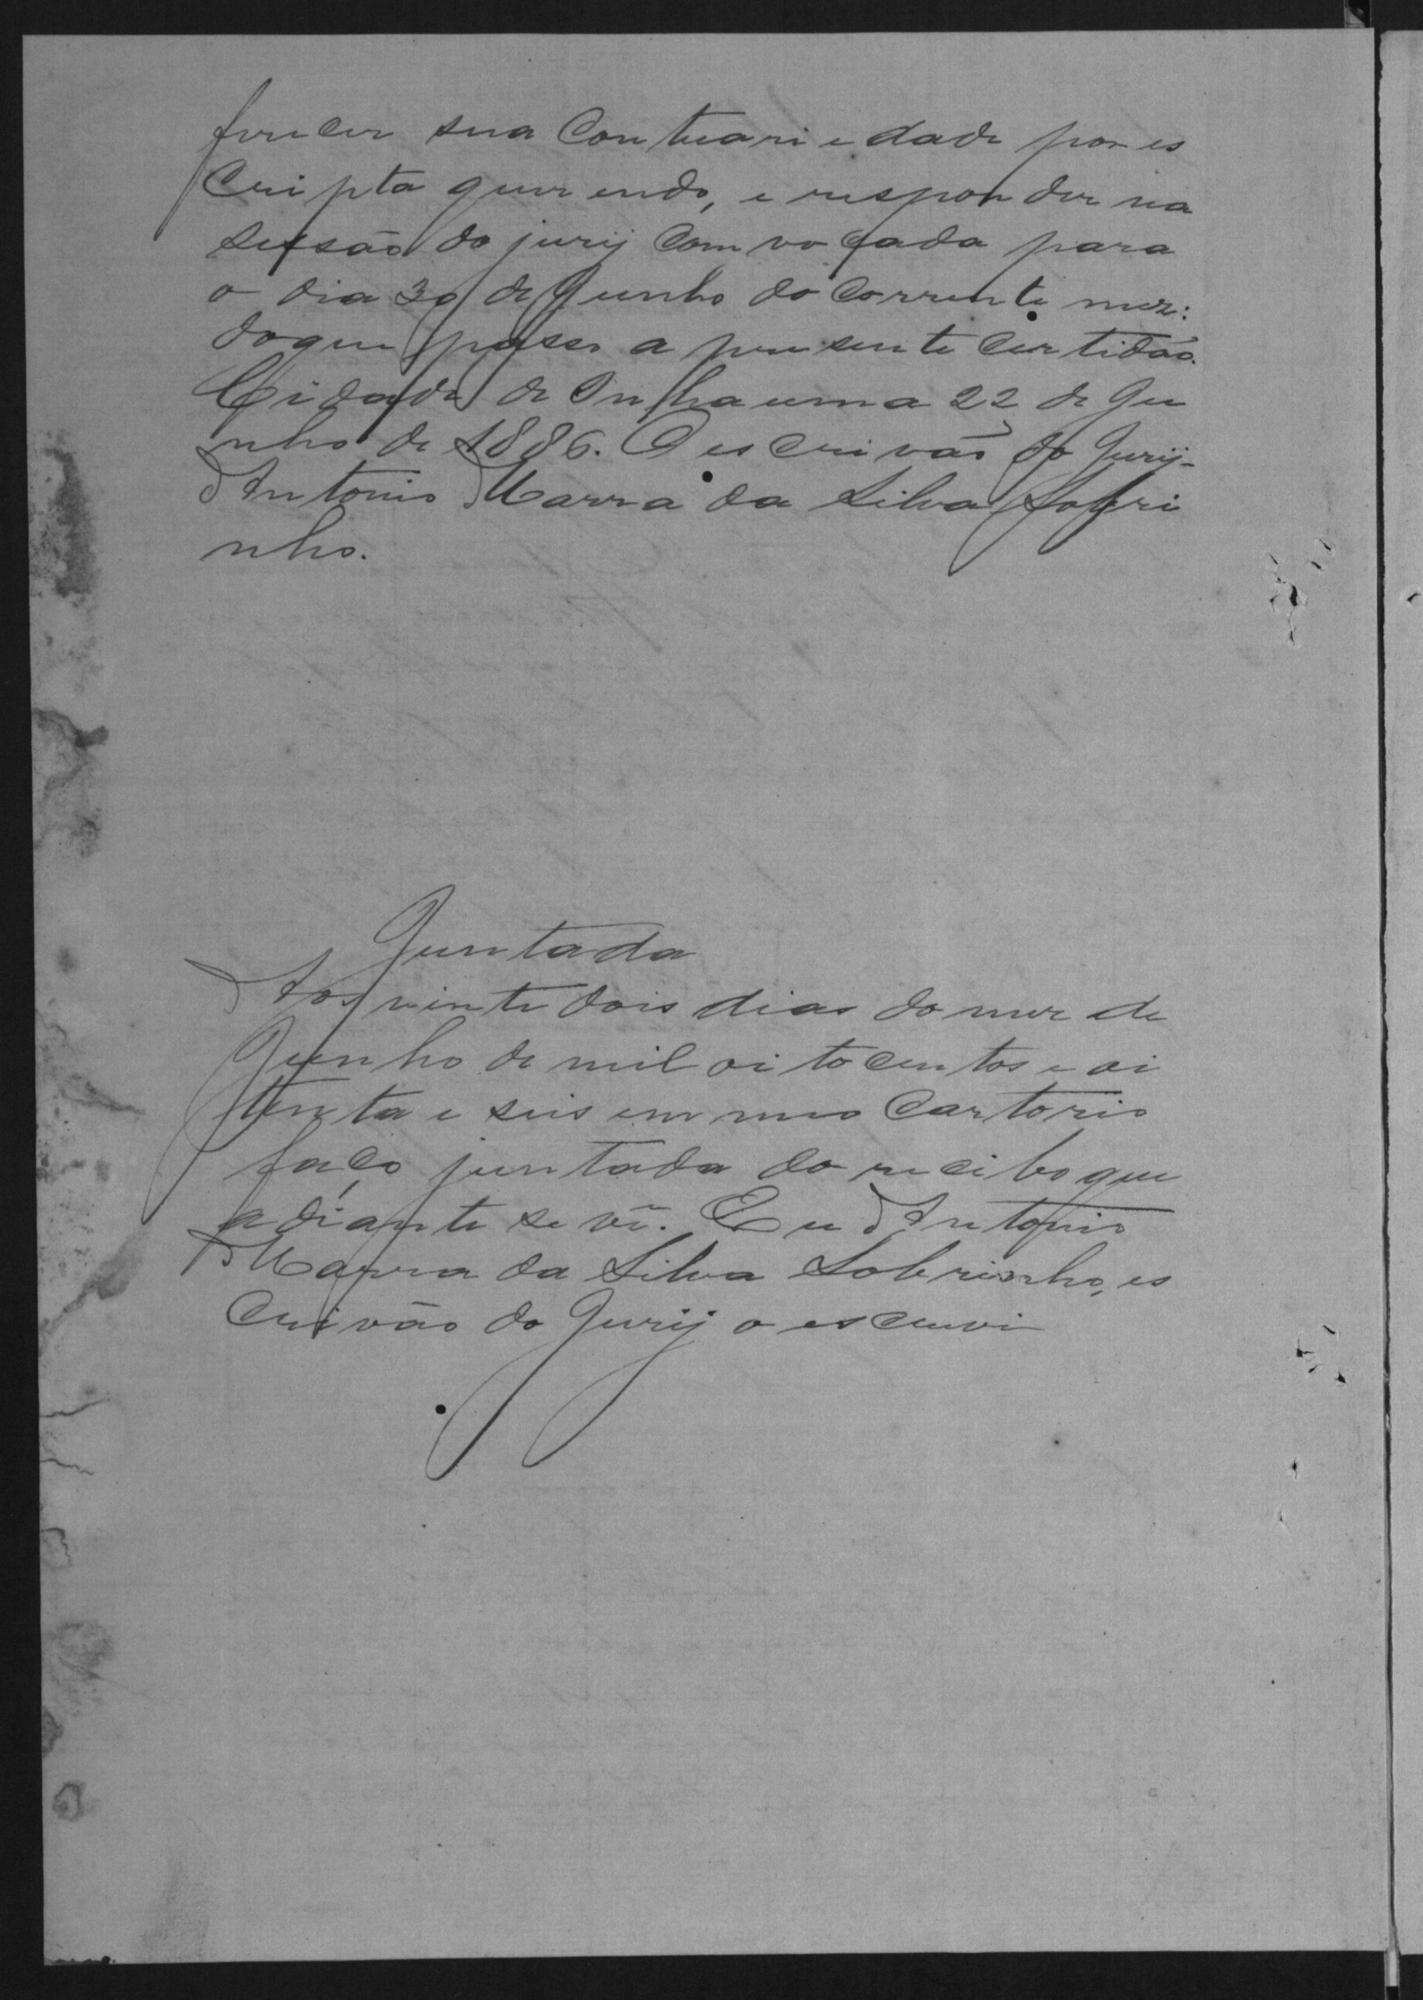 ferecer sua contrariedade por es
cripta querendo, e responder na
sessão do jury comvocada para
o dia 30 de Junho do corrente mez:
do que passo a presente certidão.
Cidade de Inhauma 22 de Ju
nho de 1886. O escrivão do Jury.
Antonio Marra da Silva Sobri
nho.
Juntada
Aos vinte dois dias do mez de
Junho de mil oitocentos e oi
tenta e seis em meo Cartorio
faço juntada do recibo que
adiante se vê. Eu Antonio
Marra da Silva Sobrinho, es
crivão do Jury o escrevi